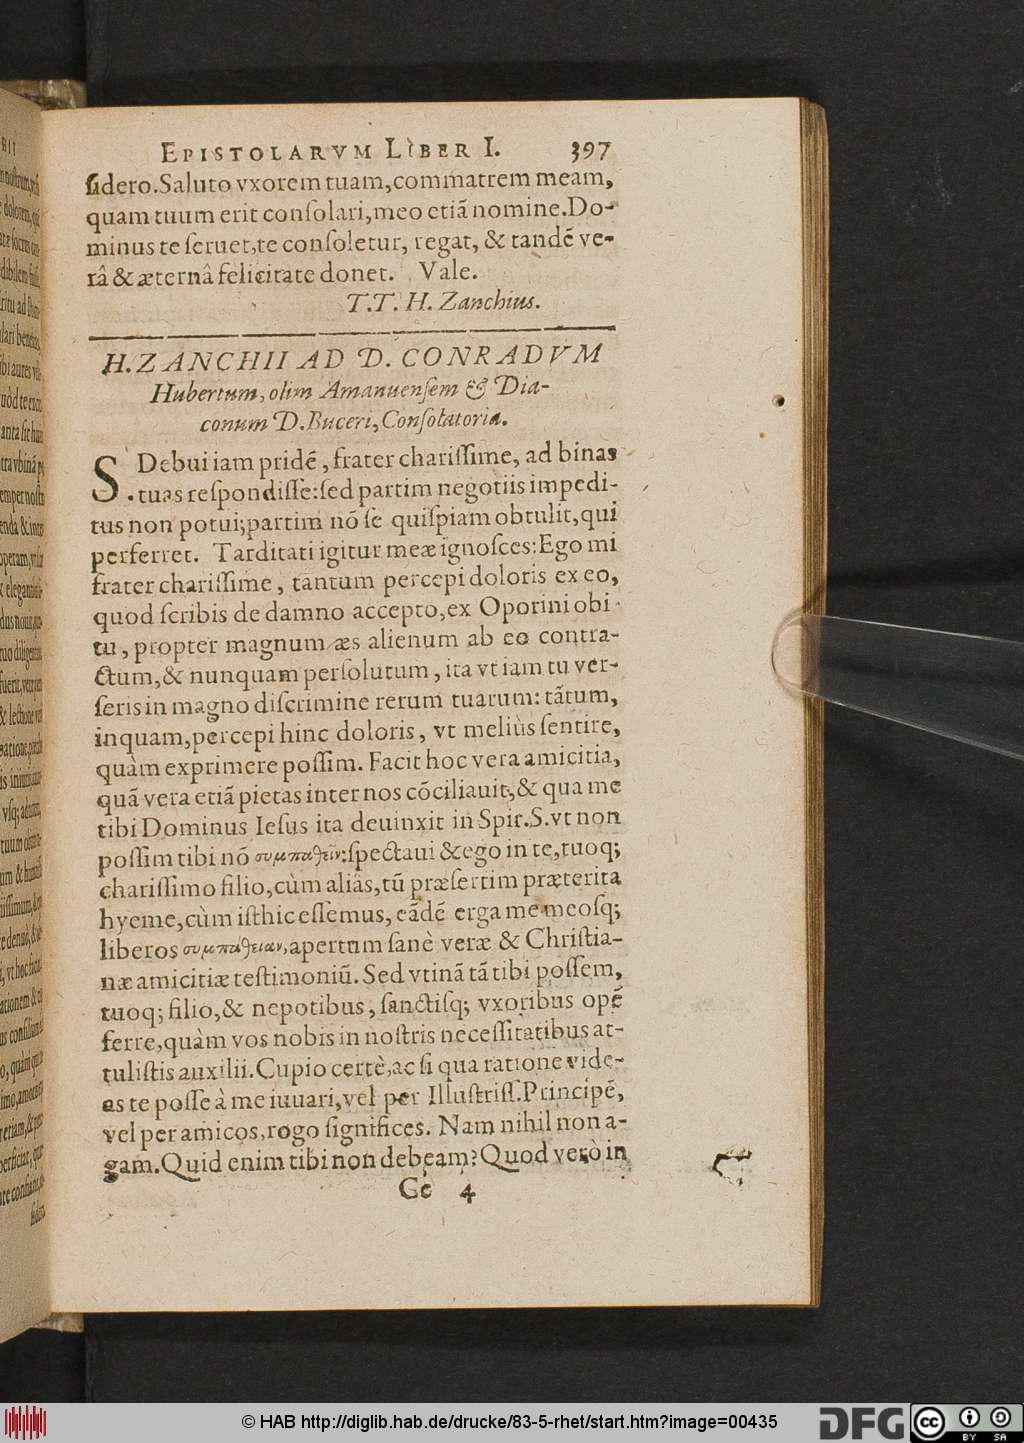 EPISTOLARVM LIBER I. 397
ſidero. Saluto vxorem tuam, commatrem meam,
quam tuum erit conſolari, meo etiã nomine. Do-
minus te ſeruet, te conſoletur, regat, & tandẽ ve-
râ & æternâ felicitate donet. Vale.
T. T. H. Zanchius.
H. ZANCHII AD D. CONRADVM
Hubertum, olim Amanuenſem & Dia-
conum D. Buceri, Conſolatoria.
S. Debui iam pridẽ, frater chariſſime, ad binas
tuas reſpondiſſe: ſed partim negotiis impedi-
tus non potui; partim nõ ſe quiſpiam obtulit, qui
perferret. Tarditati igitur meæ ignoſces: Ego mi
frater chariſſime, tantum percepi doloris ex eo,
quod ſcribis de damno accepto, ex Oporini obi-
tu, propter magnum æs alienum ab eo contra-
ctum, & nunquam perſolutum, ita vt iam tu ver-
ſeris in magno diſcrimine rerum tuarum: tãtum,
inquam, percepi hinc doloris, vt meliùs ſentire,
quàm exprimere poſſim. Facit hoc vera amicitia,
quã vera etiã pietas inter nos cõciliauit, & qua me
tibi Dominus Ieſus ita deuinxit in Spir. S. vt non
poſſim tibi nõ συμπαθεῖν: ſpectaui & ego in te, tuoq;
chariſſimo filio, cùm aliàs, tũ præſertim præterita
hyeme, cùm iſthic eſſemus, eãdẽ erga me meoſq;
liberos συμπάθειαν, apertum ſanè veræ & Chriſtia-
næ amicitiæ teſtimoniũ. Sed vtinã tã tibi poſſem,
tuoq; filio, & nepotibus, ſanctiſq; vxoribus opẽ
ferre, quàm vos nobis in noſtris neceſſitatibus at-
tuliſtis auxilii. Cupio certè, ac ſi qua ratione vide-
as te poſſe à me iuuari, vel per Illuſtriſſ. Principẽ,
vel per amicos, rogo ſignifices. Nam nihil non a-
gam. Quid enim tibi non debeam? Quod verò in
Cc 4
© HAB http://diglib.hab.de/drucke/83-5-rhet/start.htm?image=00435
DFG
cc BY SA